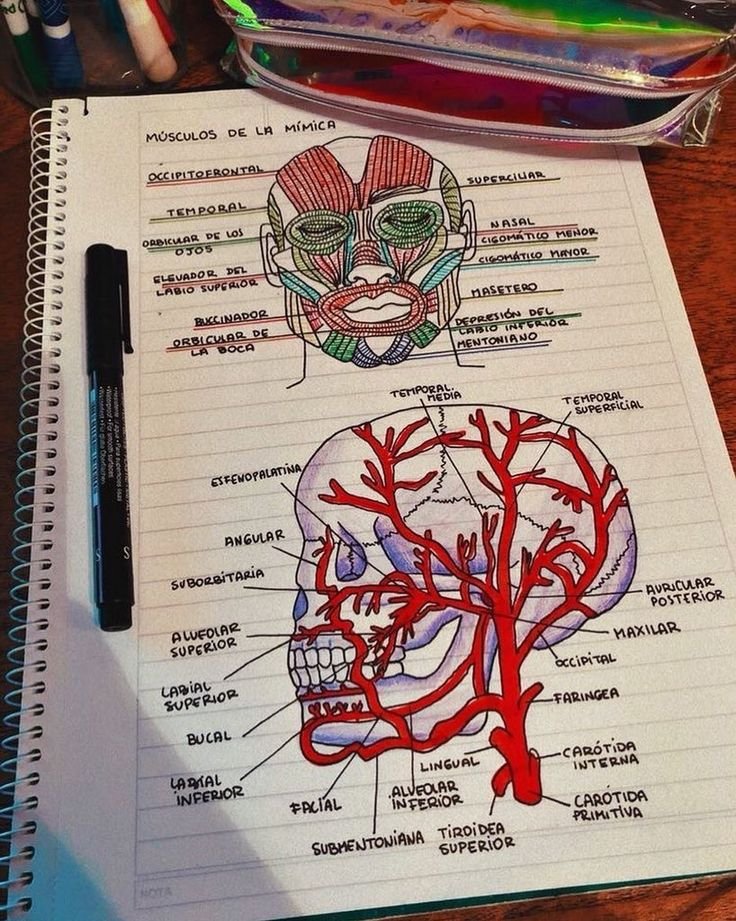 MÚSCULOS DE LA MÍMICA
OCCIPITOFRONTAL
TEMPORAL
ORBICULAR DE LOS
OJOS
ELEVADOR DEL
LABIO SUPERIOR
BUCCINADOR
ORBICULAR DE
LA BOCA
SUPERCILIAR
NASAL
CIGOMÁTICO MENOR
CIGOMÁTICO MAYOR
MASETERO
DEPRESIÓN DEL
LABIO INFERIOR
MENTONIANO
TEMPORAL
MEDIA
TEMPORAL
SUPERFICIAL
ESFENOPALATINA
ANGULAR
SUBORBITARIA
ALVEOLAR
SUPERIOR
LABIAL
SUPERIOR
BUCAL
LABIAL
INFERIOR
FACIAL
SUBMENTONIANA
ALVEOLAR
INFERIOR
LINGUAL
TIROIDEA
SUPERIOR
AURICULAR
POSTERIOR
MAXILAR
OCCIPITAL
FARINGEA
CARÓTIDA
INTERNA
CARÓTIDA
PRIMITIVA
NOTA
S